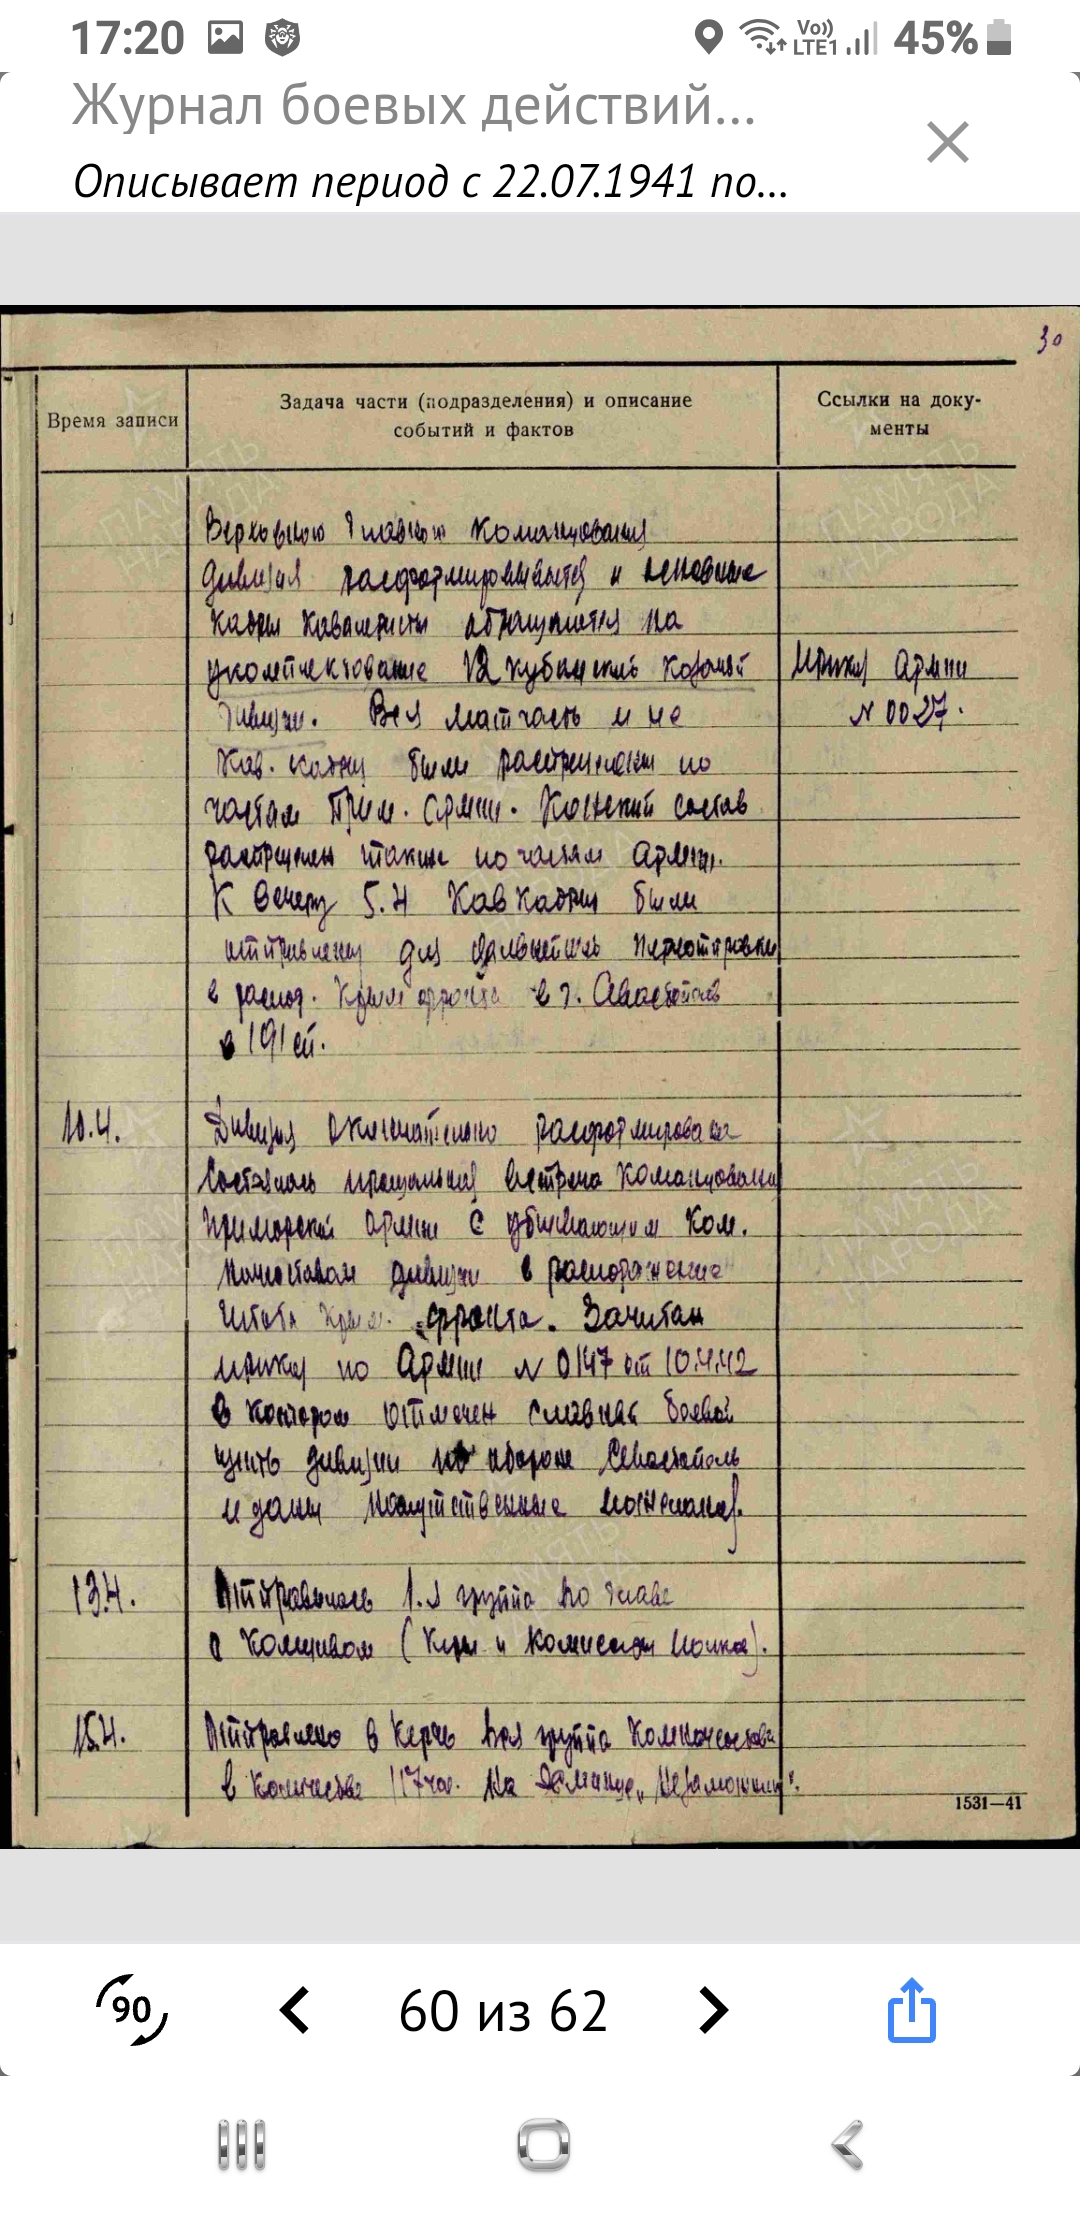 17:20
Vo)) LTE1 45%
Журнал боевых действий...
Описывает период с 22.07.1941 по...
30
Время записи
Задача части (подразделения) и описание
событий и фактов
Ссылки на доку-
менты
Верховного Главного Командования
Дивизия расформировывается и основные
кадры кавалеристы обращаются на
укомплектование 72 Кубанской казачьей
дивизии. Вся матчасть и не
Приказ Армии
N 0027.
Кав. кадры были распределены по
частям Прим. Армии. Конский состав
распределен также по частям Армии.
К вечеру 5.4 Кав кадры были
отправлены для дальнейшей
в распор. Крым фронта в г. Севастополь
в 191 сп.
10.4.
Дивизия окончательно расформирована
Состоялась прощальная встреча командования
Приморской армии с убывающим Ком.
начсоставом дивизии в распоряжение
Штаба Крым. фронта. Зачитан
приказ по Армии N 0147 от 10.4.42
в котором отмечен славный боевой
путь дивизии по обороне Севастополь
и даны напутственные пожелания.
13.4.
Отправилась 1-я группа во главе
с Комдивом (К-ры и Комиссары полков).
15.4.
Отправлено в Керчь вся группа Комначсостава
в количестве 117 чел. На эсминце „Незаможник".
1531—41
ПАМЯТЬ
НАРОДА
90
60 из 62